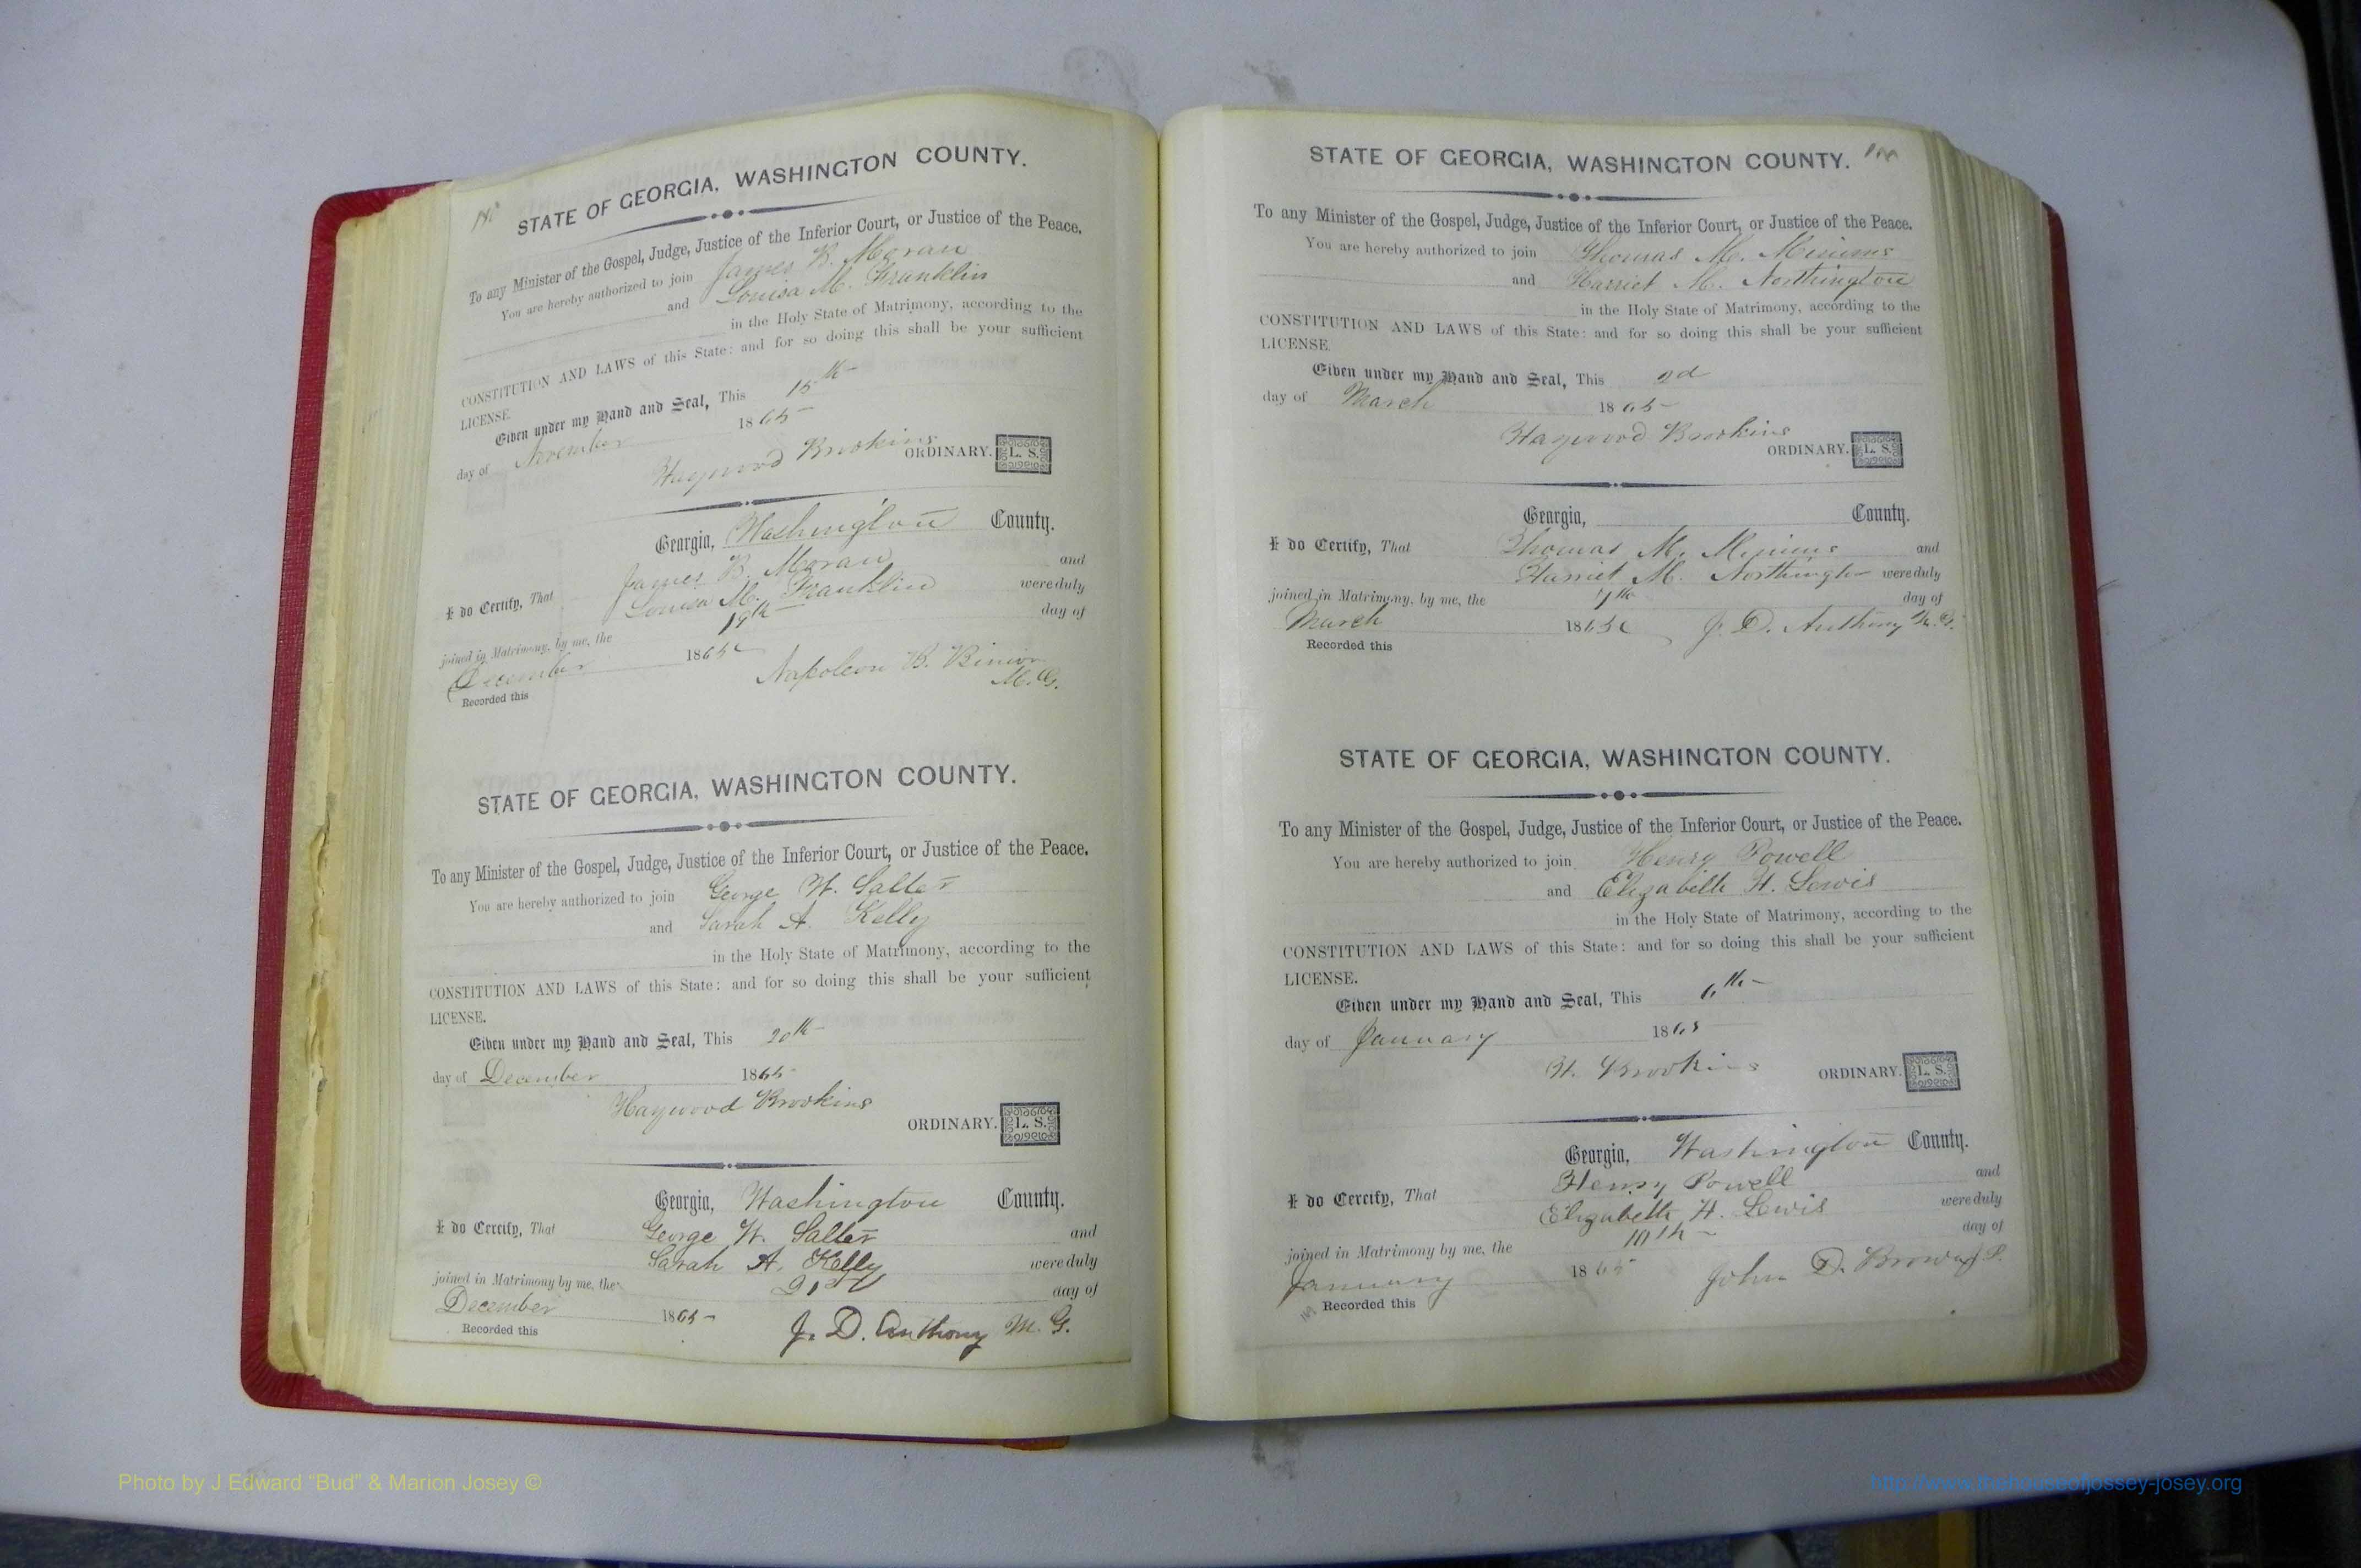 STATE OF GEORGIA, WASHINGTON COUNTY.
To any Minister of the Gospel, Judge, Justice of the Inferior Court, or Justice of the Peace.
You are hereby authorized to join James B. Moran
and Louisa M. Franklin
in the Holy State of Matrimony, according to the
CONSTITUTION AND LAWS of this State: and for so doing this shall be your sufficient
LICENSE.
Given under my Hand and Seal, This 15th
day of November 1865
Haywood Brookins
ORDINARY. L. S.
Georgia, Washington County.
I do Certify, That James B. Moran and
Louisa M. Franklin were duly
joined in Matrimony, by me, the 19th day of
December 1865
Napoleon B. Binion
M. G.
Recorded this
STATE OF GEORGIA, WASHINGTON COUNTY.
To any Minister of the Gospel, Judge, Justice of the Inferior Court, or Justice of the Peace.
You are hereby authorized to join George W. Salter
and Sarah A. Kelly
in the Holy State of Matrimony, according to the
CONSTITUTION AND LAWS of this State: and for so doing this shall be your sufficient
LICENSE.
Given under my Hand and Seal, This 20th
day of December 1865
Haywood Brookins
ORDINARY. L. S.
Georgia, Washington County.
I do Certify, That George W. Salter and
Sarah A. Kelly were duly
joined in Matrimony by me, the 21st day of
December 1865
J. D. Anthony M. G.
Recorded this
STATE OF GEORGIA, WASHINGTON COUNTY.
To any Minister of the Gospel, Judge, Justice of the Inferior Court, or Justice of the Peace.
You are hereby authorized to join Thomas M. Minims
and Harriet M. Northington
in the Holy State of Matrimony, according to the
CONSTITUTION AND LAWS of this State: and for so doing this shall be your sufficient
LICENSE.
Given under my Hand and Seal, This 2d
day of March 1865
Haywood Brookins
ORDINARY. L. S.
Georgia, County.
I do Certify, That Thomas M. Minims and
Harriet M. Northington were duly
joined in Matrimony, by me, the 7th day of
March 1865 J. D. Anthony M. G.
Recorded this
STATE OF GEORGIA, WASHINGTON COUNTY.
To any Minister of the Gospel, Judge, Justice of the Inferior Court, or Justice of the Peace.
You are hereby authorized to join Henry Powell
and Elizabeth H. Lewis
in the Holy State of Matrimony, according to the
CONSTITUTION AND LAWS of this State: and for so doing this shall be your sufficient
LICENSE.
Given under my Hand and Seal, This 6th
day of January 1865
H. Brookins
ORDINARY. L. S.
Georgia, Washington County.
I do Certify, That Henry Powell and
Elizabeth H. Lewis were duly
joined in Matrimony by me, the 10th day of
January 1865 John D. Brown J. P.
Recorded this
Photo by J Edward "Bud" & Marion Josey ©
http://www.thehouseofjossey-josey.org